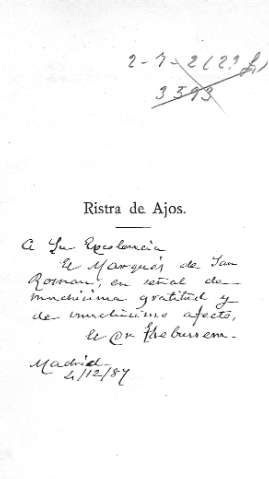 2-7-2(2ª
3393
Ristra de Ajos.
A Su Excelencia
El Marqués de San
Roman, en señal de
muchisima gratitud y
de muchisimo afecto,
El Dr Thebussem.
Madrid
4/12/84